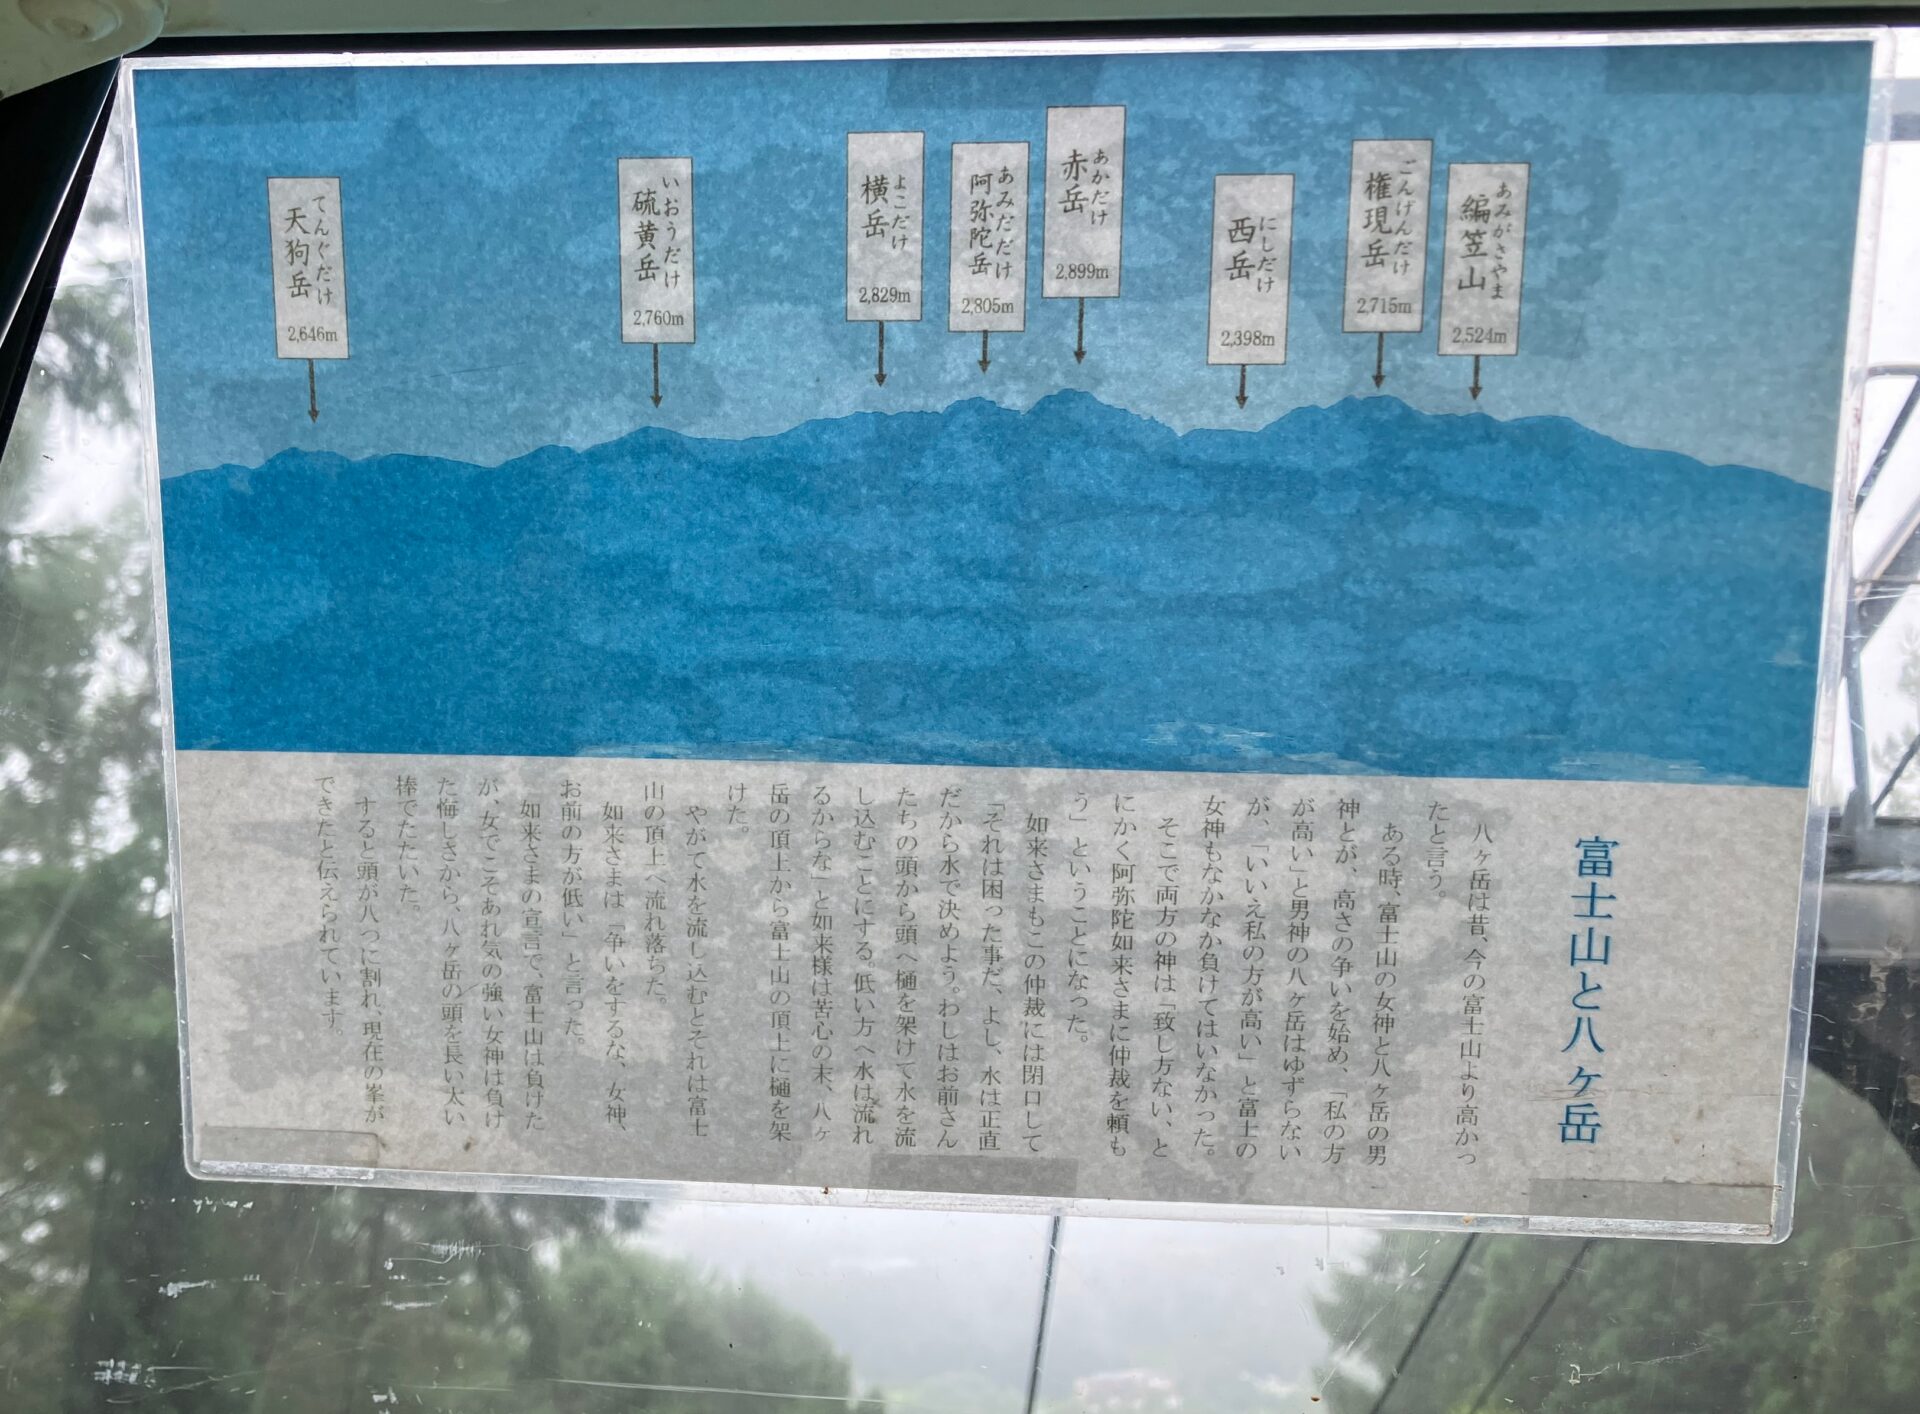 てんぐだけ
天狗岳
2,646m
いおうだけ
硫黄岳
2,760m
よこだけ
横岳
2,829m
あみだだけ
阿弥陀岳
2,805m
あかだけ
赤岳
2,899m
にしだけ
西岳
2,398m
ごんげんだけ
権現岳
2,715m
あみがさやま
編笠山
2,524m
富士山と八ヶ岳
八ヶ岳は昔、今の富士山より高かっ
たと言う。
ある時、富士山の女神と八ヶ岳の男
神とが、高さの争いを始め、「私の方
が高い」と男神の八ヶ岳はゆずらない
が、「いいえ私の方が高い」と富士の
女神もなかなか負けてはいなかった。
そこで両方の神は「致し方ない、と
にかく阿弥陀如来さまに仲裁を頼も
う」ということになった。
如来さまもこの仲裁には閉口して
「それは困った事だ、よし、水は正直
だから水で決めよう。わしはお前さん
たちの頭から頭へ樋を架けて水を流
し込むことにする。低い方へ水は流れ
るからな」と如来様は苦心の末、八ヶ
岳の頂上から富士山の頂上に樋を架
けた。
やがて水を流し込むとそれは富士
山の頂上へ流れ落ちた。
如来さまは「争いをするな、女神、
お前の方が低い」と言った。
如来さまの宣言で、富士山は負けた
が、女でこそあれ気の強い女神は負け
た悔しさから、八ヶ岳の頭を長い太い
棒でたたいた。
すると頭が八つに割れ、現在の峯が
できたと伝えられています。